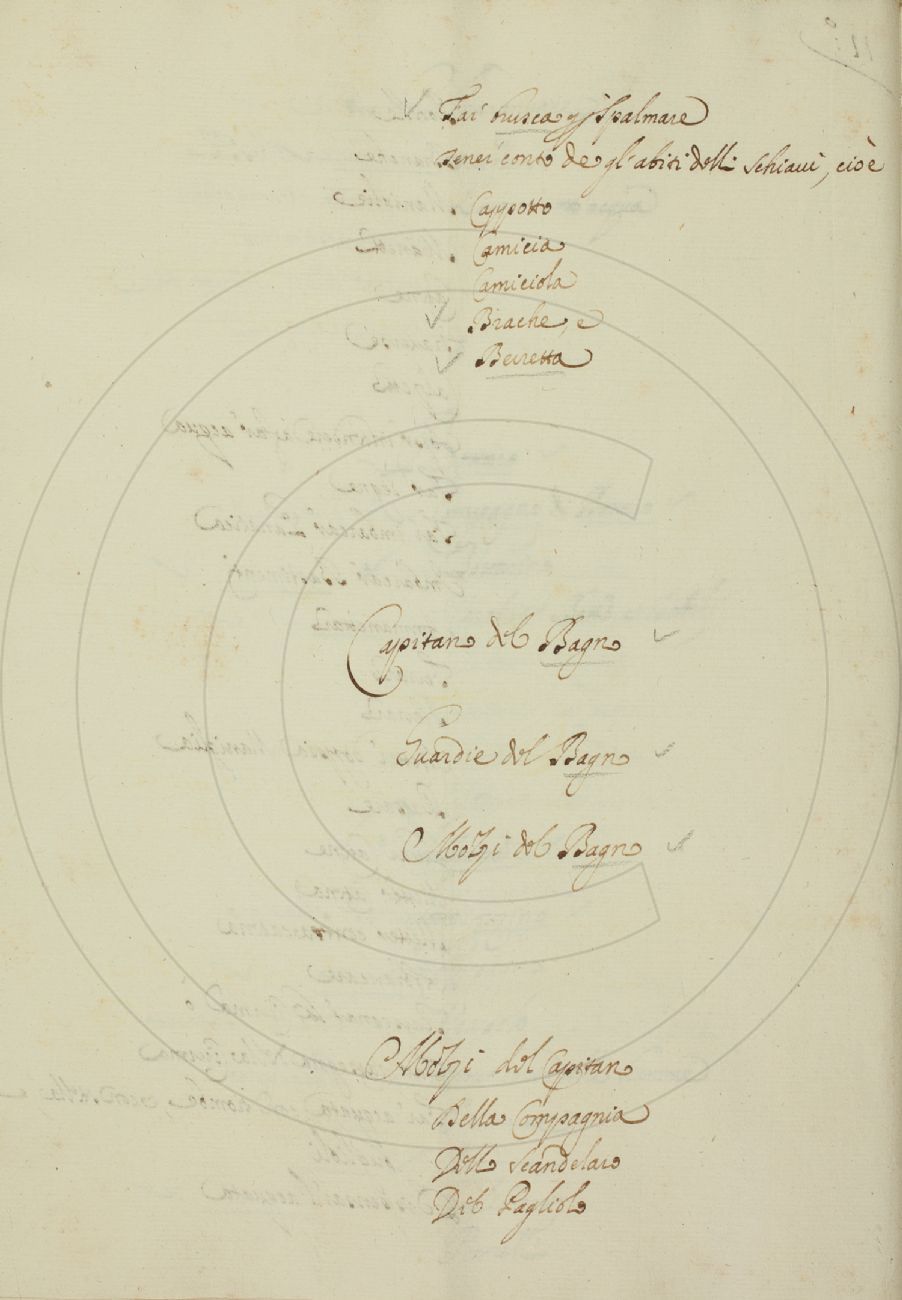 Far brusca p spalmare
Tener conto de gl'abiti delli schiaui, cioè
Cappotto
Camicia
Camiciola
Brache, e
Berretta
Capitano del Bagno
Guardie del Bagno
Mozzi del Bagno
Mozzi del Capitano
Della Compagnia
Dello Scandelaro
Del Pagliolo